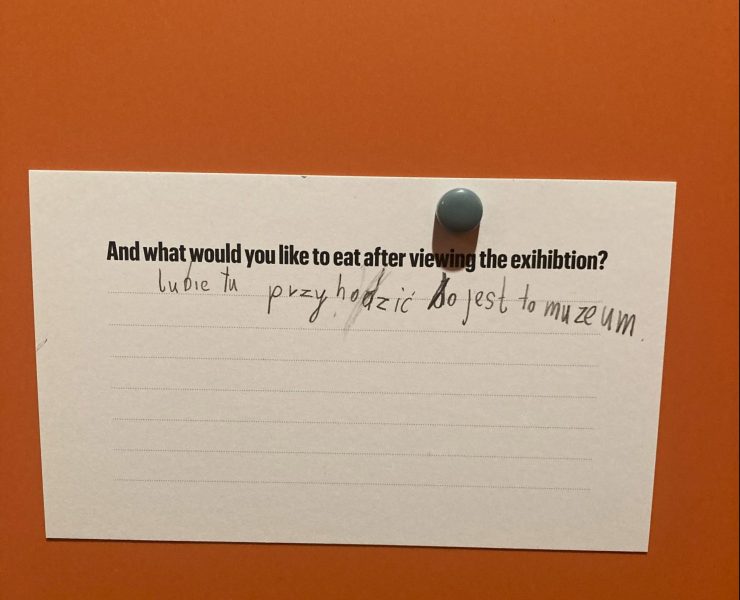 And what would you like to eat after viewing the exihibtion?
lubie tu przyhodzić bo jest to muzeum